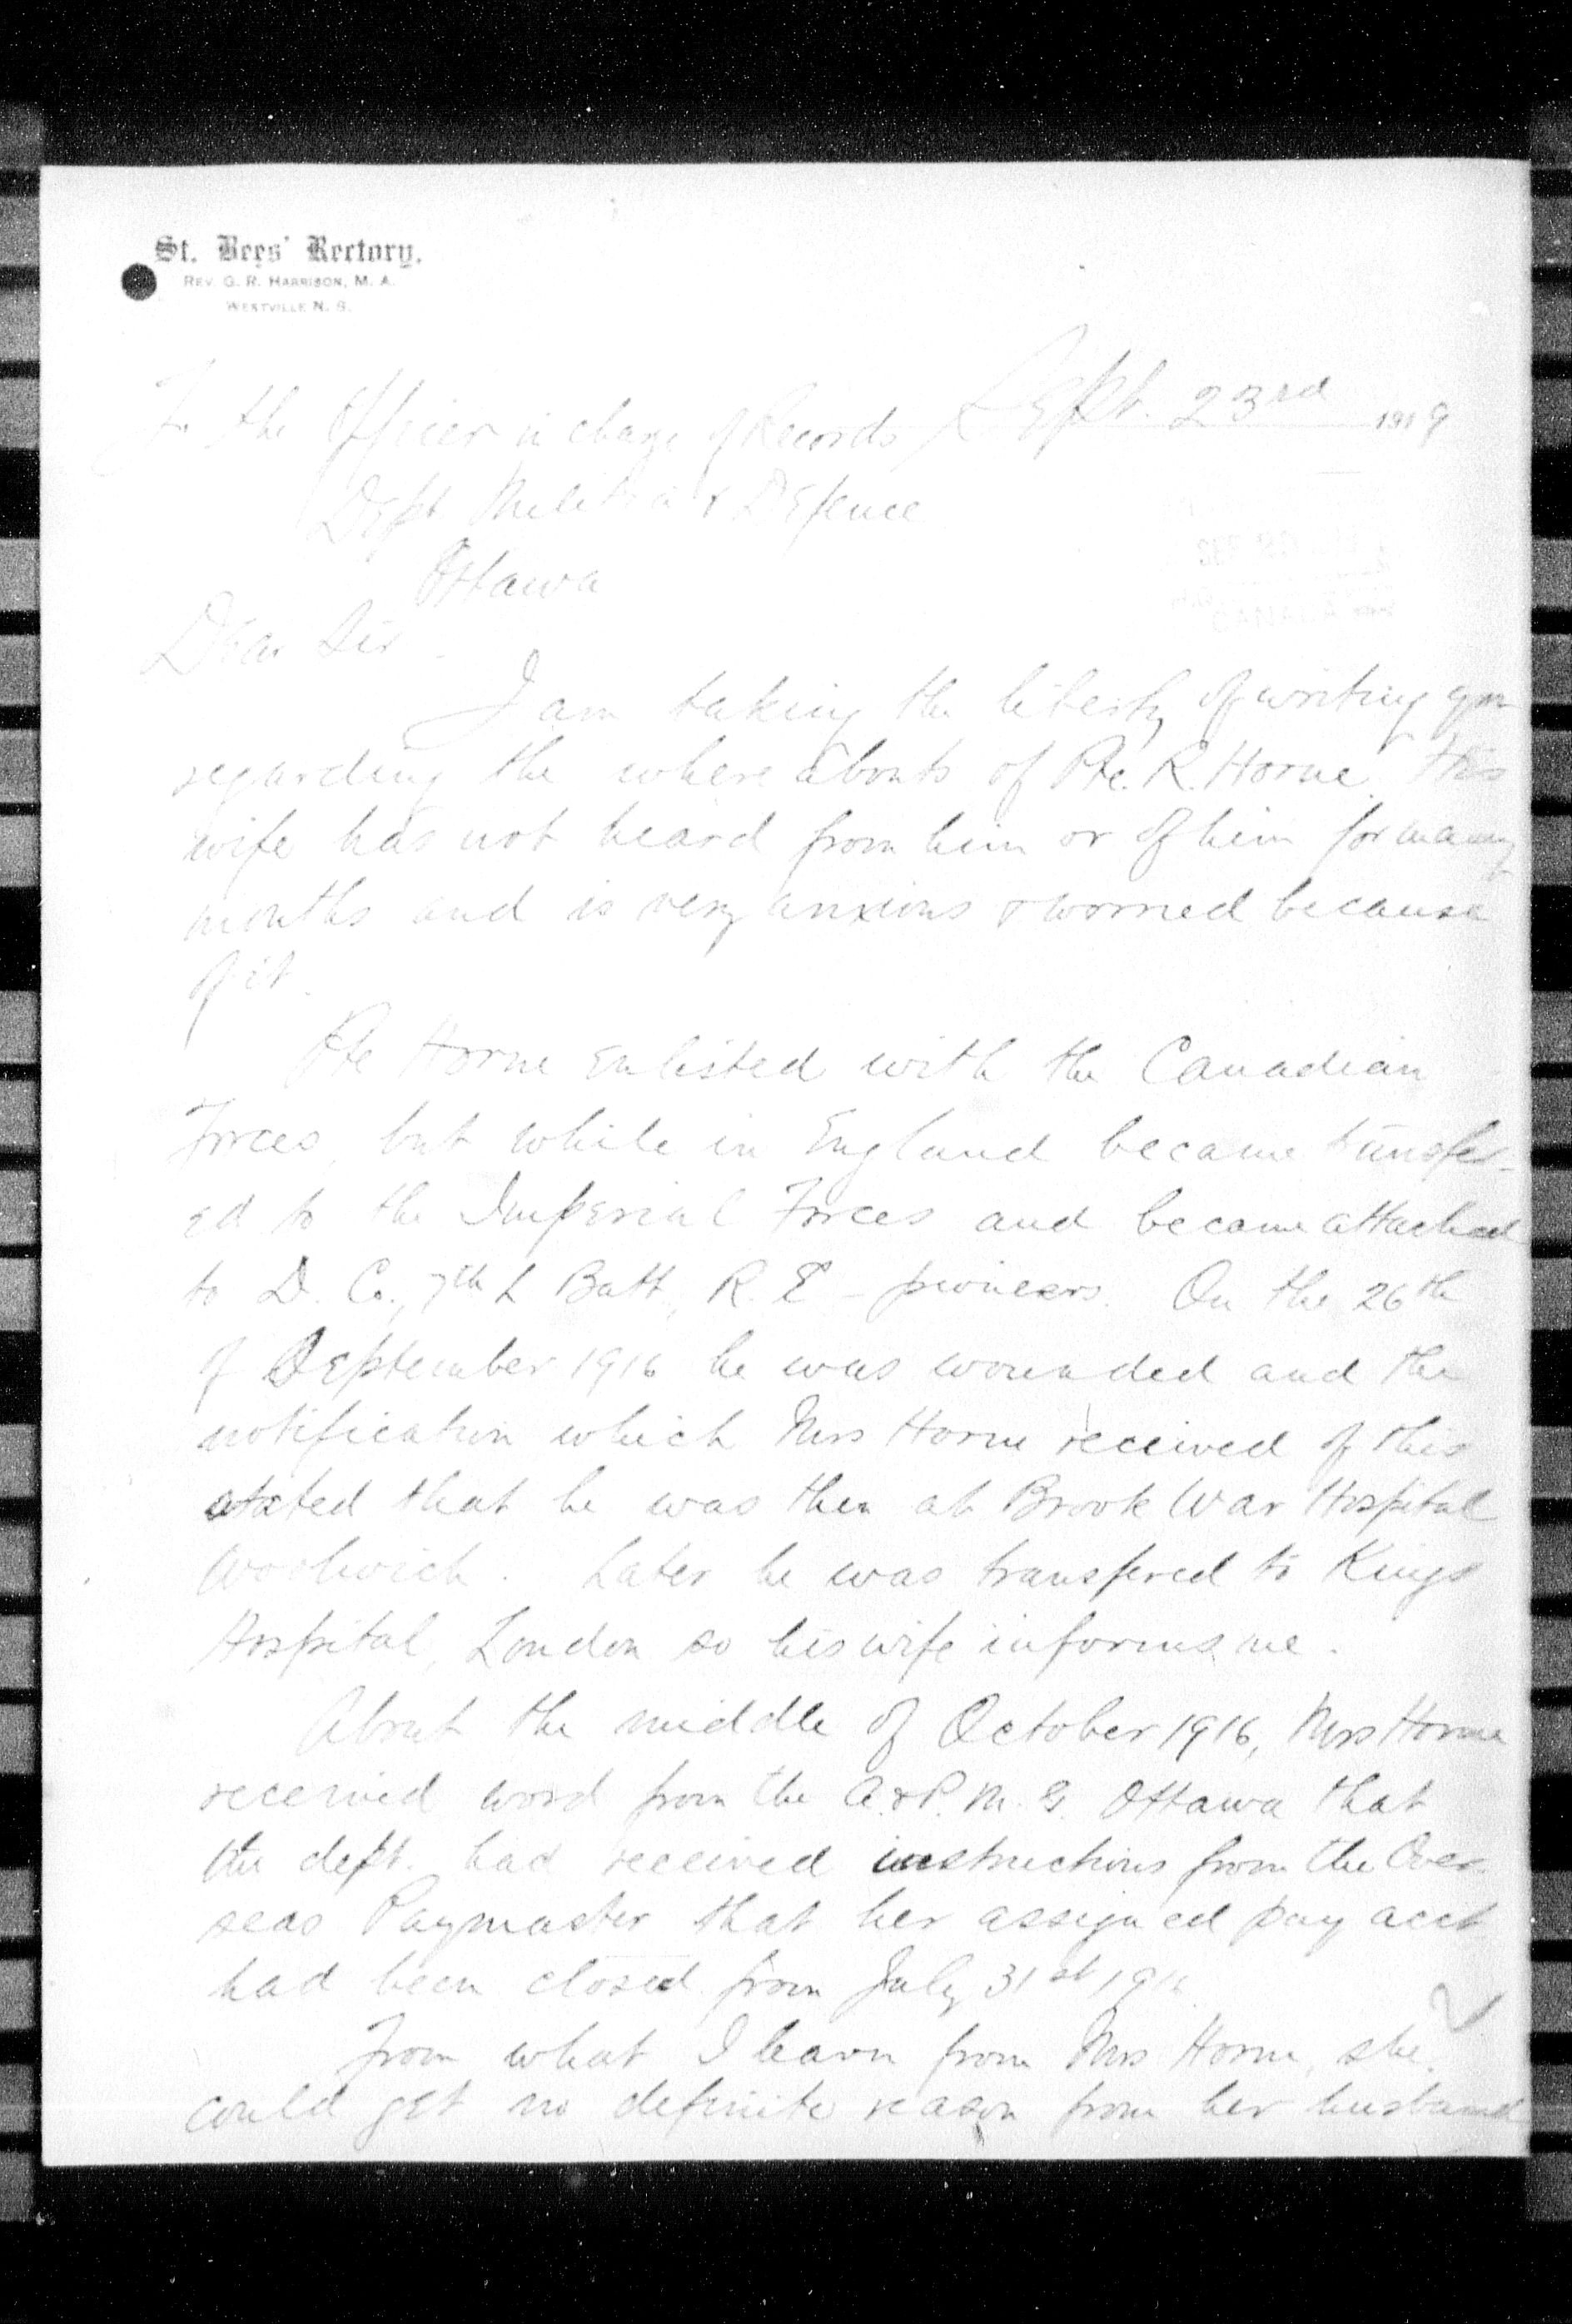 St. Bees' Rectory.
REV. G. R. HARRISON, M. A.
WESTVILLE N. S.
Sept. 23rd 1919
To the Officer in charge of Records
Dept Militia & Defence
Ottawa
Dear Sir
I am taking the liberty of writing you
regarding the whereabouts of Pte. R. Horne. His
wife has not heard from him or of him for many
months and is very anxious & worried because
of it.
Pte Horne enlisted with the Canadian
Forces, but while in England became transfer-
ed to the Imperial Forces and became attached
to D. Co., 7th L Batt, R. E - pioneers. On the 26th
of September 1916 he was wounded and the
notification which Mrs Horne received of this
stated that he was then at Brook War Hospital
Woolwich. Later he was transfered to Kings
Hospital, London so his wife informs me.
About the middle of October 1916, Mrs Horne
received word from the A. & P. M. G. Ottawa that
the dept. had received instructions from the Over-
seas Paymaster that her assigned pay acct
had been closed from July 31st 1916
From what I learn from Mrs Horne, she
could get no definite reason from her husband